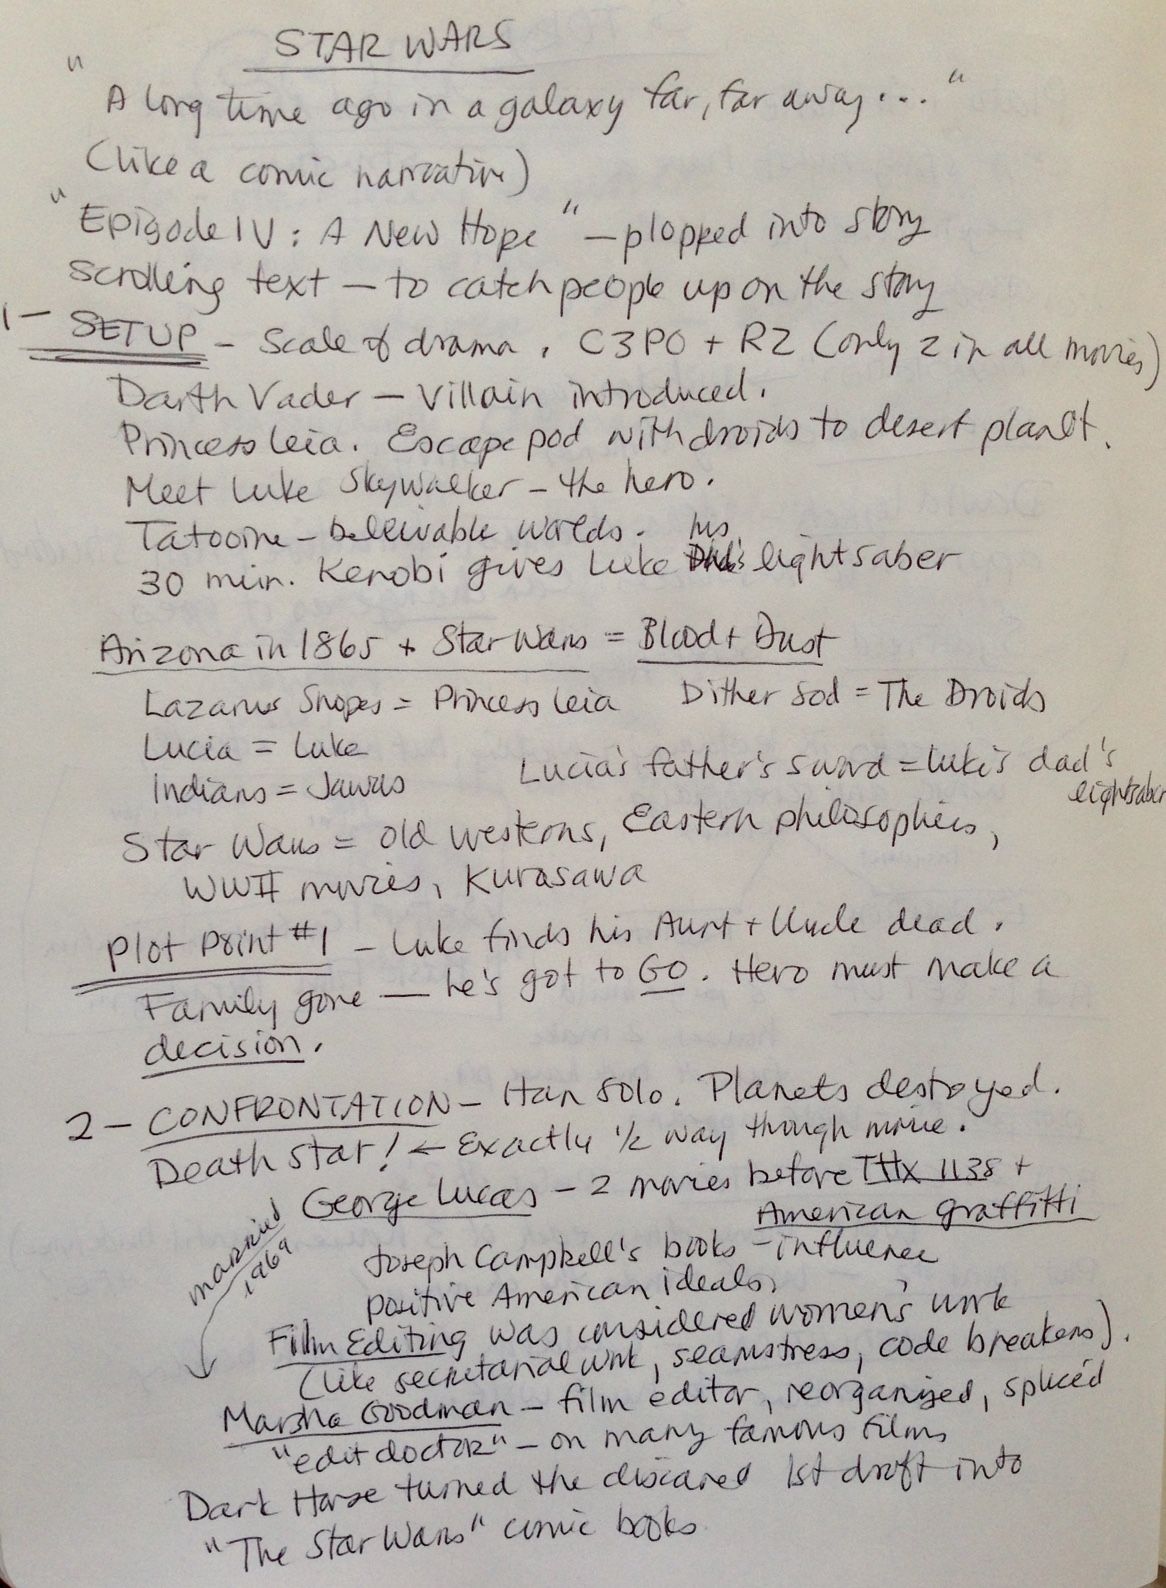 STAR WARS
"A long time ago in a galaxy far, far away..."
(like a comic narrative)
"Episode IV: A New Hope" - plopped into story
scrolling text - to catch people up on the story
1- SETUP - Scale of drama. C3PO + R2 (only 2 in all movies)
Darth Vader - Villain introduced.
Princess Leia. Escape pod with droids to desert planet.
Meet Luke Skywalker - the hero.
Tatooine - believable worlds.
his
30 min. Kenobi gives Luke lightsaber
Arizona in 1865 + Star Wars = Blood + Dust
Lazarus Snopes = Princess Leia Dither Sod = The Droids
Lucia = Luke
Lucia's father's sword = Luke's dad's
Indians = Jawas
lightsaber
Star Wars = old westerns, Eastern philosophies,
WWII movies, Kurasawa
Plot Point #1 - Luke finds his Aunt + Uncle dead.
Family gone - he's got to GO. Hero must make a
decision.
2 - CONFRONTATION - Han Solo. Planets destroyed.
Death Star! ← Exactly 1/2 way through movie.
George Lucas - 2 movies before THX 1138 +
American Graffitti
married
1969
Joseph Campbell's books - influence
positive American ideals.
Film Editing was considered women's work
(like secretarial work, seamstress, code breakers).
Marsha Goodman - film editor, reorganized, spliced
"edit doctor" - on many famous films
Dark Horse turned the discared 1st draft into
"The Star Wars" comic books